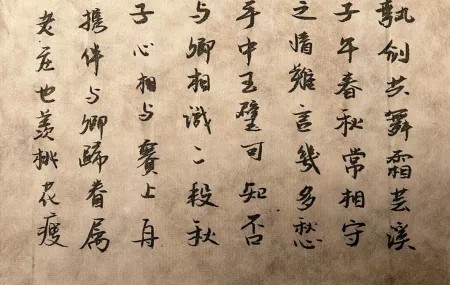 執剑共舞霜芸溪
子午春秋常相守
之情難言幾多愁
手中玉璧可知否
与卿相識二秋
子心相与鬢上
携伴与卿歸眷属
老庄也羡桃花瘦